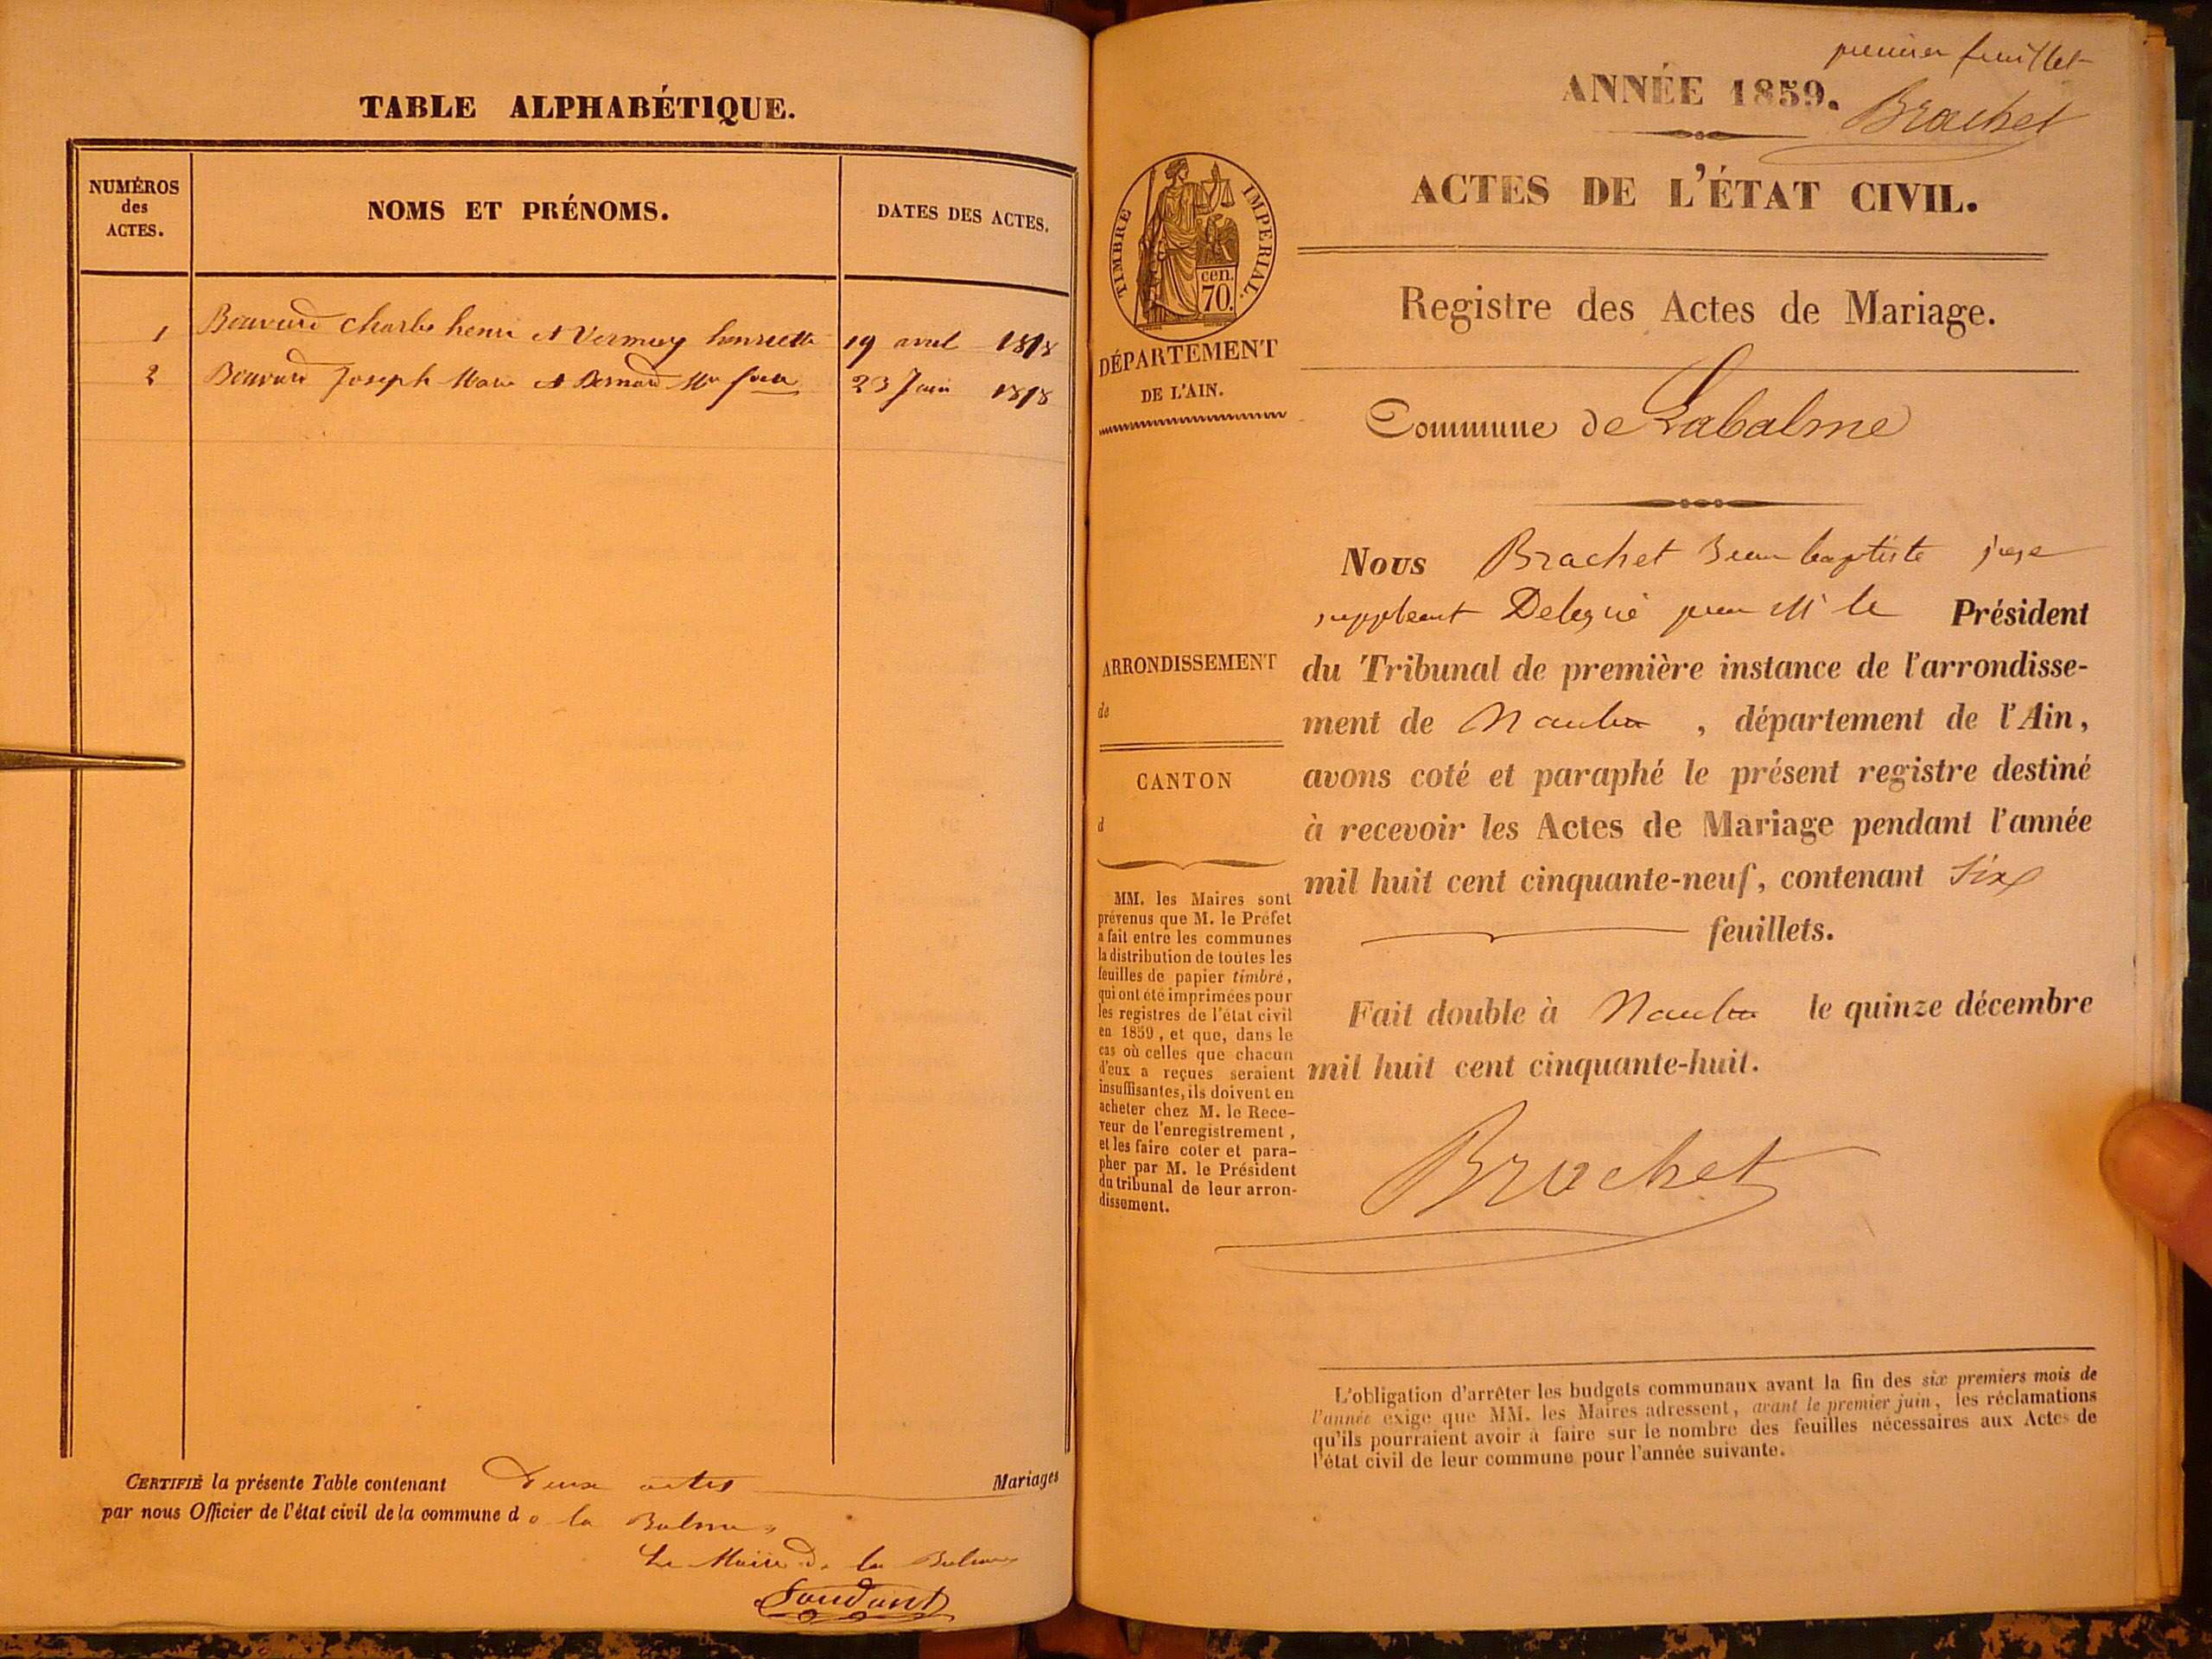 TABLE ALPHABÉTIQUE.
NUMÉROS
des
ACTES.
NOMS ET PRÉNOMS.
DATES DES ACTES.
1 Bouvard Charles henri et henriette 19 avril
2 Bouvard Joseph Marie et Bernard 23 Juin
CERTIFIÉ la présente Table contenant Deux actes Mariages
par nous Officier de l'état civil de la commune de la Balme
Le Maire de la Balme
premier feuillet
ANNÉE 1859.
Brachet
ACTES DE L'ÉTAT CIVIL.
TIMBRE IMPERIAL.
cen.
70.
DÉPARTEMENT
DE L'AIN.
Registre des Actes de Mariage.
Commune de Labalme
Nous Brachet Jean baptiste juge
suppleant Delegué par Mr le Président
du Tribunal de première instance de l'arrondisse-
ment de Nantua, département de l'Ain,
avons coté et paraphé le présent registre destiné
à recevoir les Actes de Mariage pendant l'année
mil huit cent cinquante-neuf, contenant Six
feuillets.
Fait double à Nantua le quinze décembre
mil huit cent cinquante-huit.
Brachet
ARRONDISSEMENT
de
CANTON
d
MM. les Maires sont
prévenus que M. le Préfet
a fait entre les communes
la distribution de toutes les
feuilles de papier timbré,
qui ont été imprimées pour
les registres de l'état civil
en 1859, et que, dans le
cas où celles que chacun
d'eux a reçues seraient
insuffisantes, ils doivent en
acheter chez M. le Rece-
veur de l'enregistrement,
et les faire coter et para-
pher par M. le Président
du tribunal de leur arron-
dissement.
L'obligation d'arrêter les budgets communaux avant la fin des six premiers mois de
l'année exige que MM. les Maires adressent, avant le premier juin, les réclamations
qu'ils pourraient avoir à faire sur le nombre des feuilles nécessaires aux Actes de
l'état civil de leur commune pour l'année suivante.